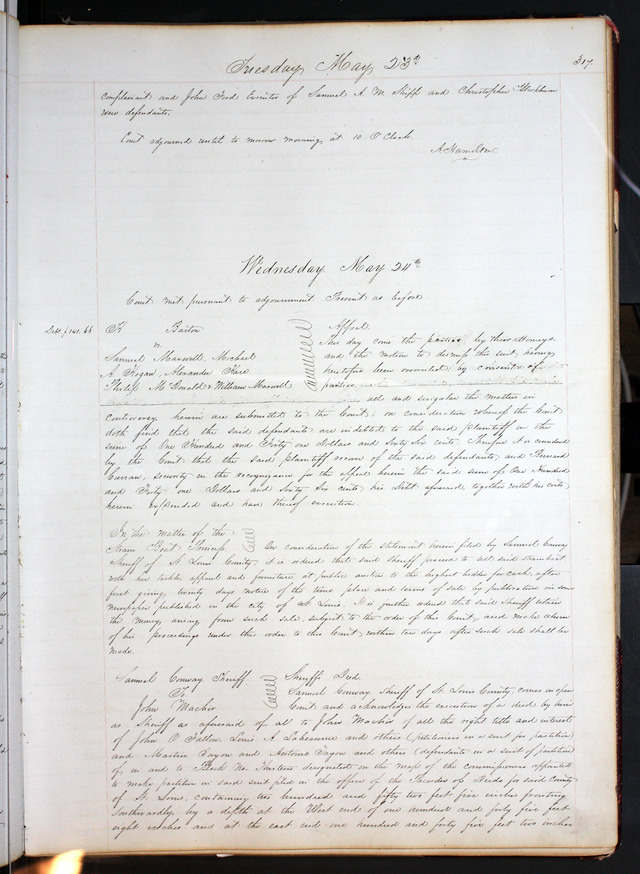 Tuesday May 23rd
317
complainant and John Ford Executor of Samuel A. M. Skipp and Christopher
were defendants.
Court adjourned until to morrow morning at 10 O'Clock.
A Hamilton
Wednesday May 24th
Court met pursuant to adjournment Present as before
Debt $141.66
Barton
vs
Samuel Maxwell, Michael
A. Fagan, Alexander
Philip McDonald & William Maxwell
Appeal
This day come the parties by their attorneys
and the motion to dismiss this suit having
heretofore been overruled by consent of
parties
all and singular the matters in
controversy herein are submitted to the Court; on consideration whereof the Court
doth find that the said defendants are indebted to the said plaintiff in the
sum of One Hundred and Forty one Dollars and Sixty Six cents. Therefore it is considered
by the Court that the said plaintiff recover of the said defendants and Bernard
Curran, security in the recognizance for the appeal herein the said sum of One Hundred
and Forty one Dollars and Sixty Six cents his debt aforesaid together with his costs
herein expended and have thereof execution.
In the matter of the
Steam Boat
On consideration of the statement herein filed by Samuel Conway
Sheriff of St Louis County, it is ordered that said Sheriff proceed to sell said steamboat
with her tackle, apparel and furniture at public auction to the highest bidder for cash, after
first giving twenty days notice of the time place and terms of sale by publication in some
newspaper published in the city of St Louis. It is further ordered that said Sheriff retain
the money arising from such sale subject to the order of this Court, and make return
of his proceedings under this order to this Court within ten days after such sale shall be
made.
Samuel Conway Sheriff
To
John Machir
Sheriffs Deed.
Samuel Conway Sheriff of St. Louis County, comes in open
Court and acknowledges the execution of a deed by him
as Sheriff as aforesaid of all to John Machir of all the right title and interest
of John O Fallon, Louis A. Labeaume and others (petitioners in a suit for partition)
and Martin Fayon and Antoine Fayon and others (defendants in a suit of partition)
of, in and to Block No. Thirteen designated on the map of the Commissioners appointed
to make partition in said suit filed in the office of the Recorder of Deeds for said County
of St. Louis, containing two hundred and fifty two feet five inches fronting
Southwardly, by a depth at the West end of one hundred and forty five feet
eight inches and at the east end one hundred and forty five feet two inches